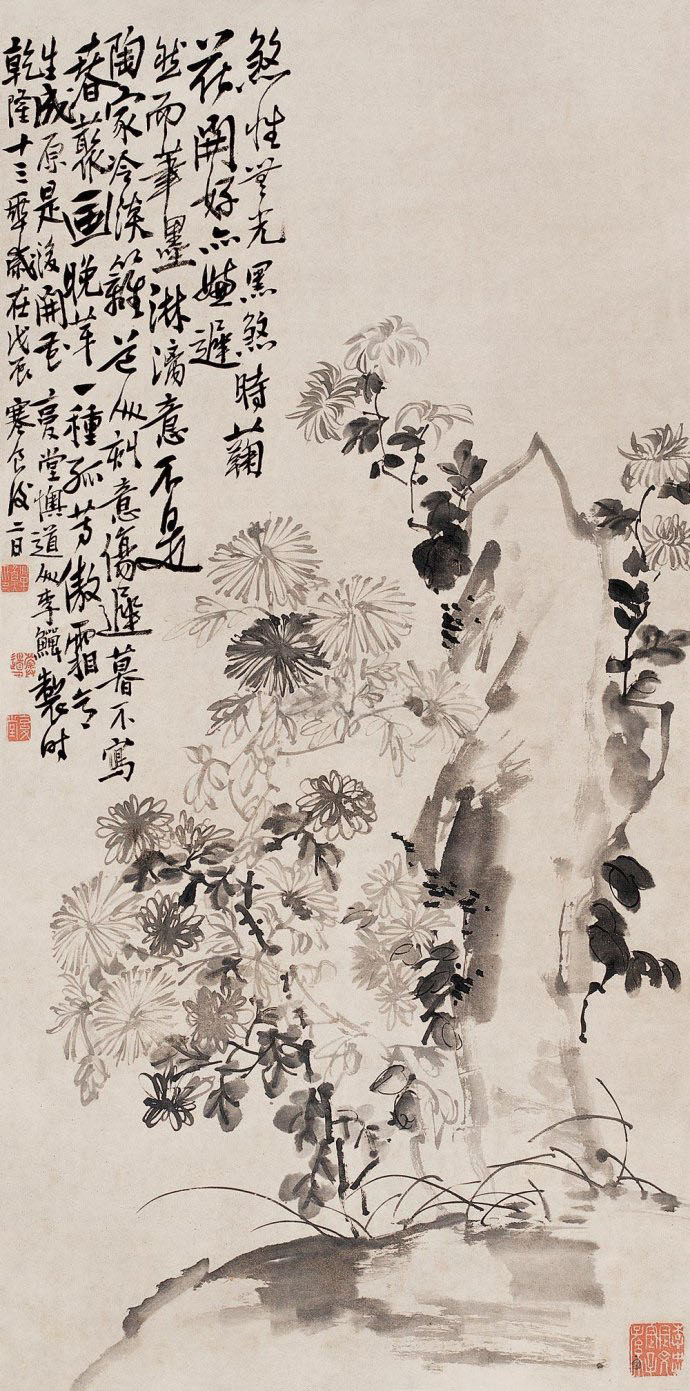 煞性無光黑煞時菊
花開好亦嫌遲
然而筆墨淋漓意不是
陶家冷淡籬刻意傷遲暮不寫
春叢画晚華一種孤芳傲霜色
生成原是後開花复堂懊道人李鱓製时
乾隆十三年歲在戊辰寒食後二日